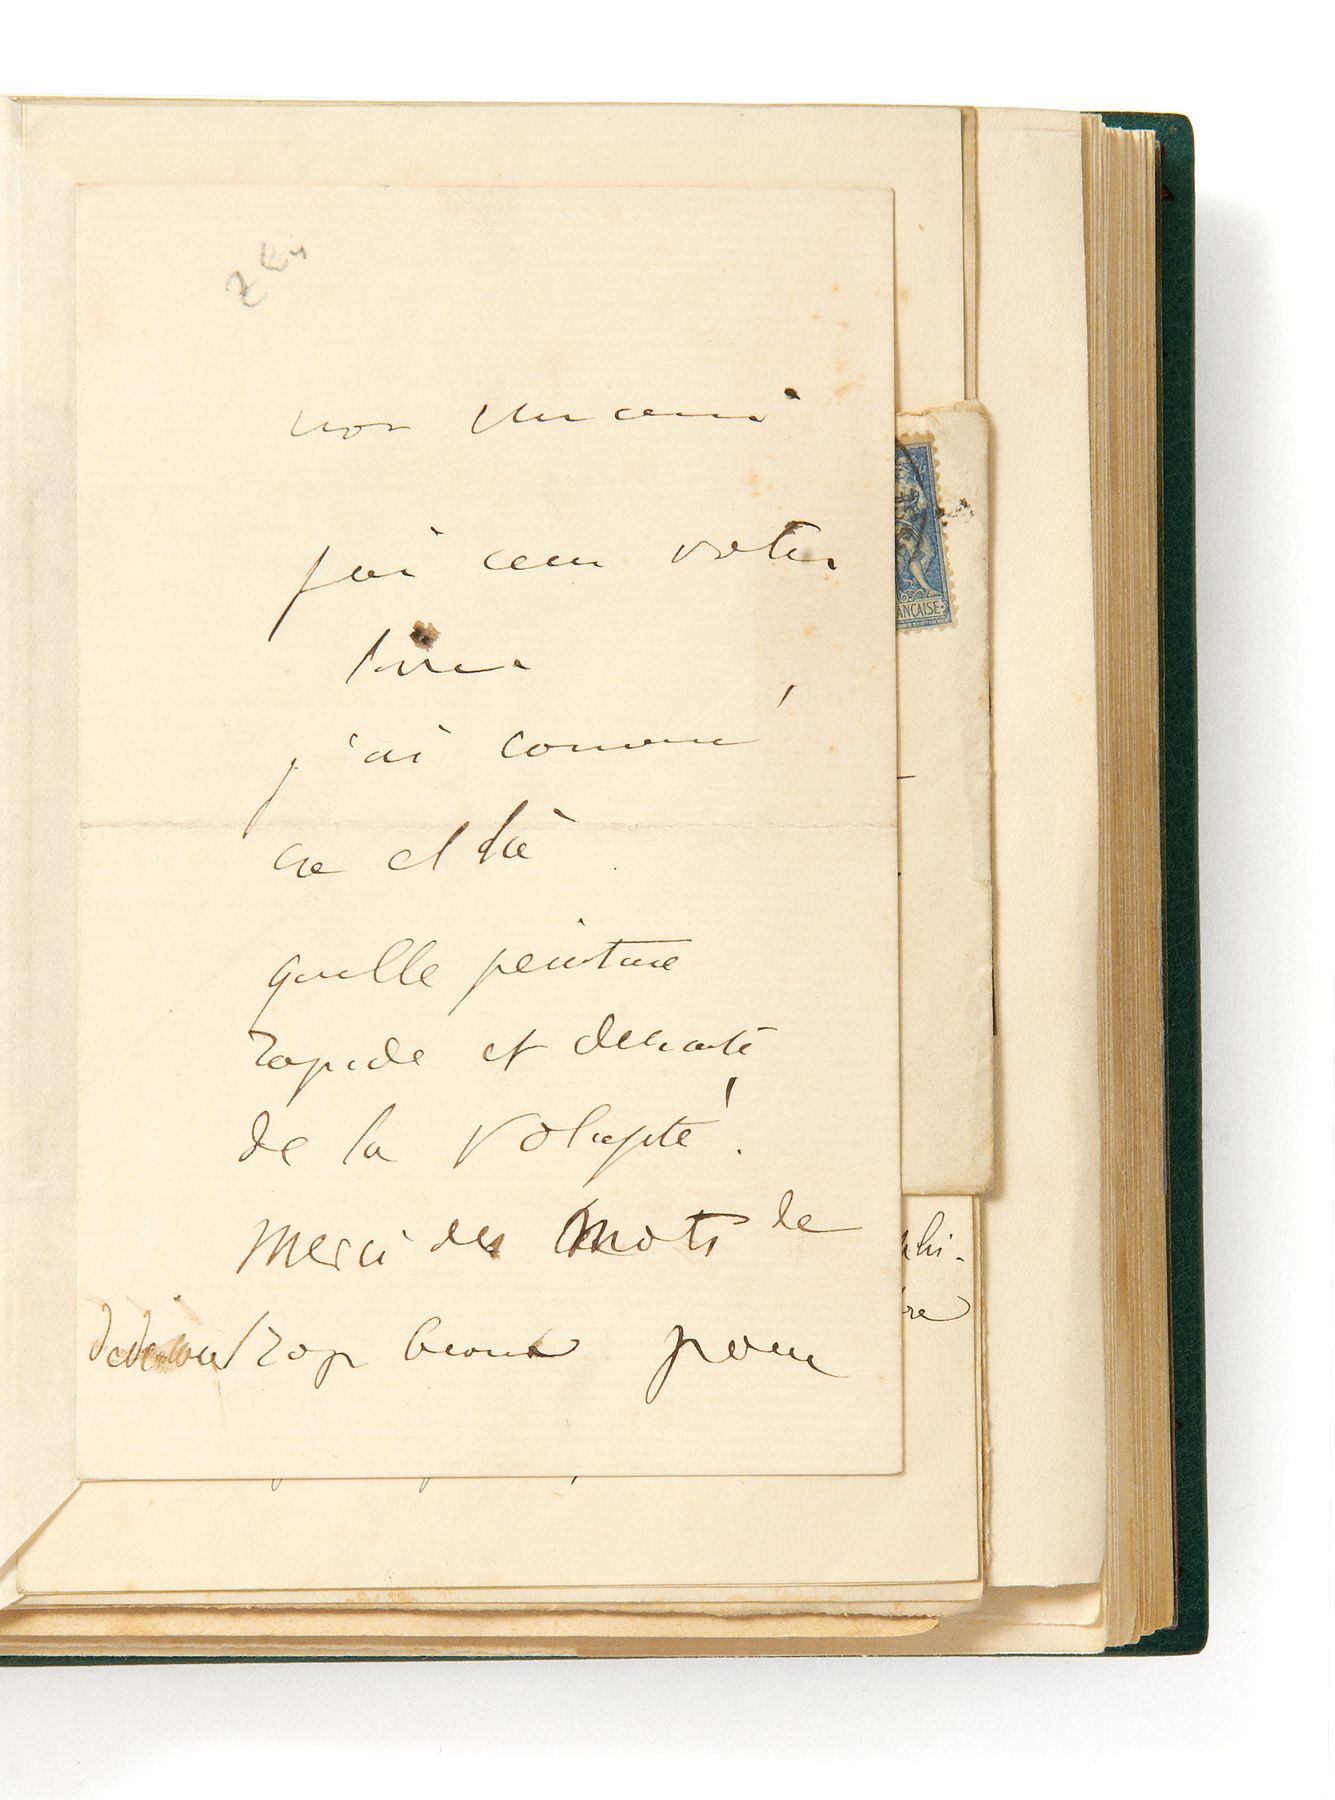 mon cher ami
j'ai reçu votre
livre
j'ai
et là
quelle peinture
rapide et delicate
de la volupté!
Merci des mots de
trop beaux pour
ANÇAISE
phi-
re